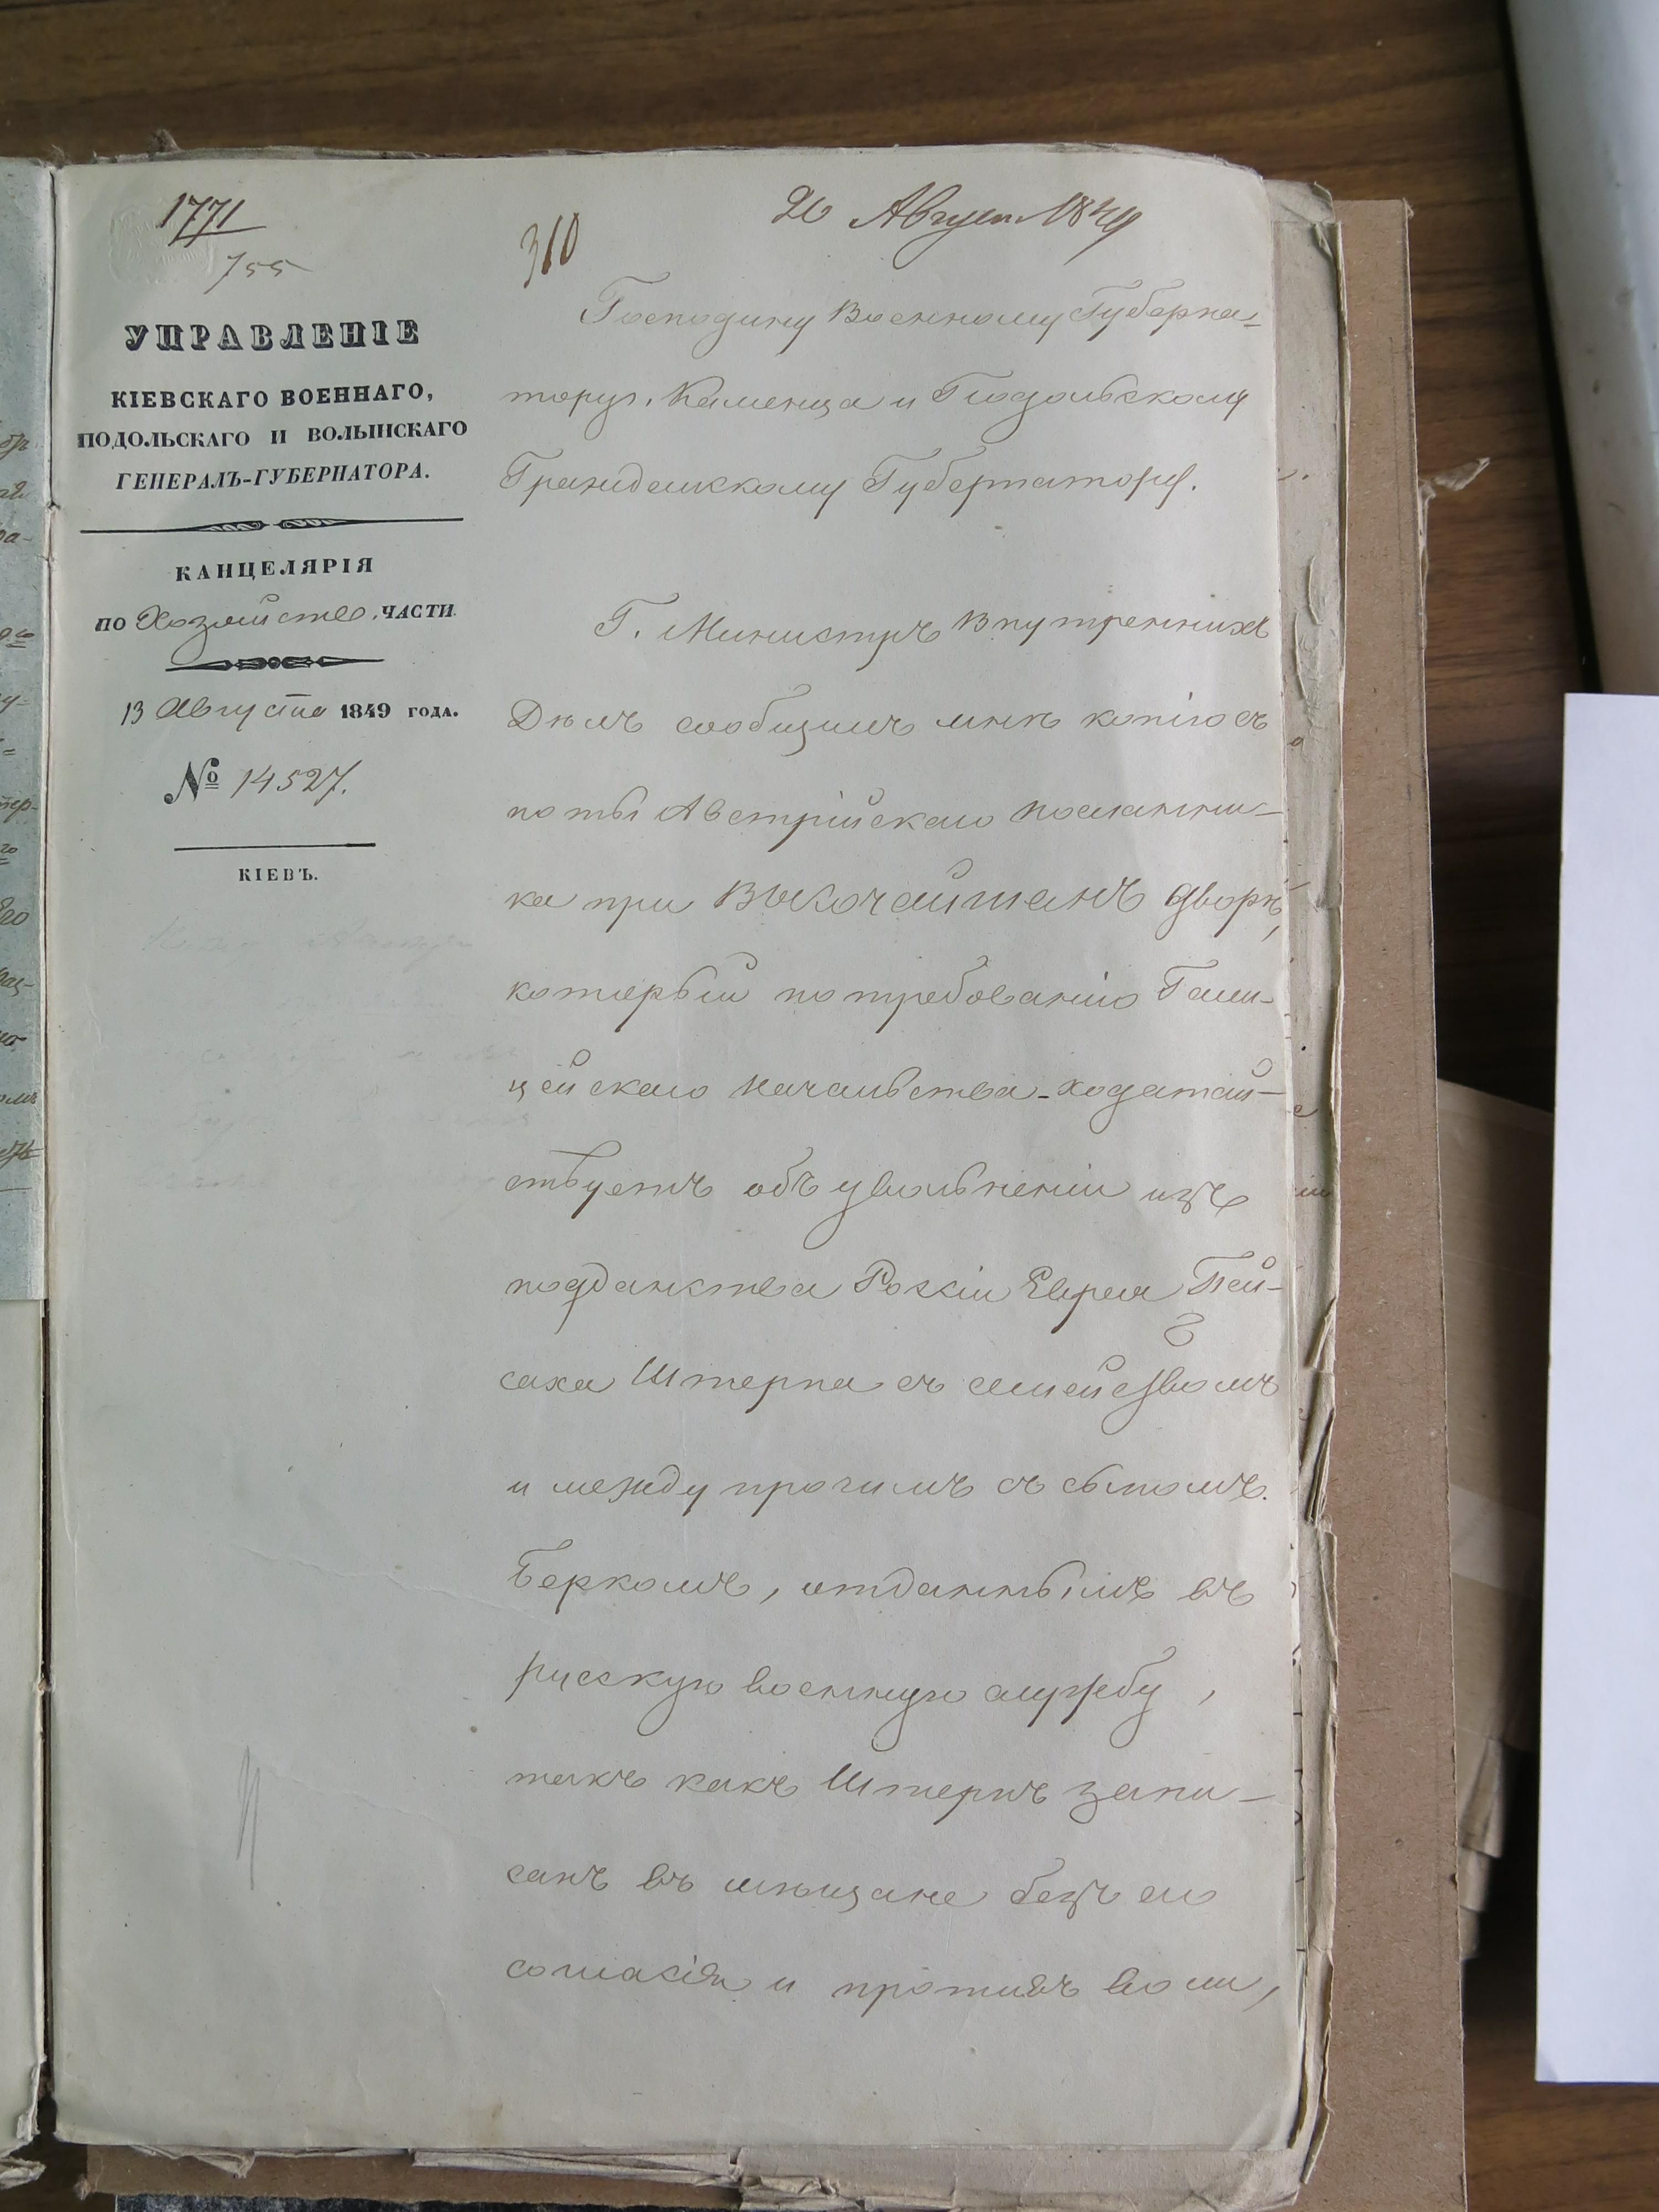 1771
755
310
26 Август. 1849
УПРАВЛЕНІЕ
КІЕВСКАГО ВОЕННАГО,
ПОДОЛЬСКАГО И ВОЛЫНСКАГО
ГЕНЕРАЛЪ-ГУБЕРНАТОРА.
КАНЦЕЛЯРІЯ
ПО Хозяйств. ЧАСТИ.
13 Августа 1849 ГОДА.
№ 14527.
КІЕВЪ.
Господину Военному Губерна-
тору г. Каменца и Подольскому
Гражданскому Губернатору.
Г. Министръ Внутреннихъ
Дѣлъ сообщилъ мнѣ копію съ
ноты Австрійскаго посланни-
ка при Высочайшемъ дворѣ,
который по требованію Гали-
ційскаго Начальства ходатай-
ствуетъ объ увольненіи изъ
подданства Россіи Еврея Пей-
саха Штерна съ семействомъ
и между прочимъ съ сыномъ
Беркомъ, отданнымъ въ
русскую военную службу,
такъ какъ Штернъ запи-
санъ въ мѣщане безъ его
согласія и противъ воли,